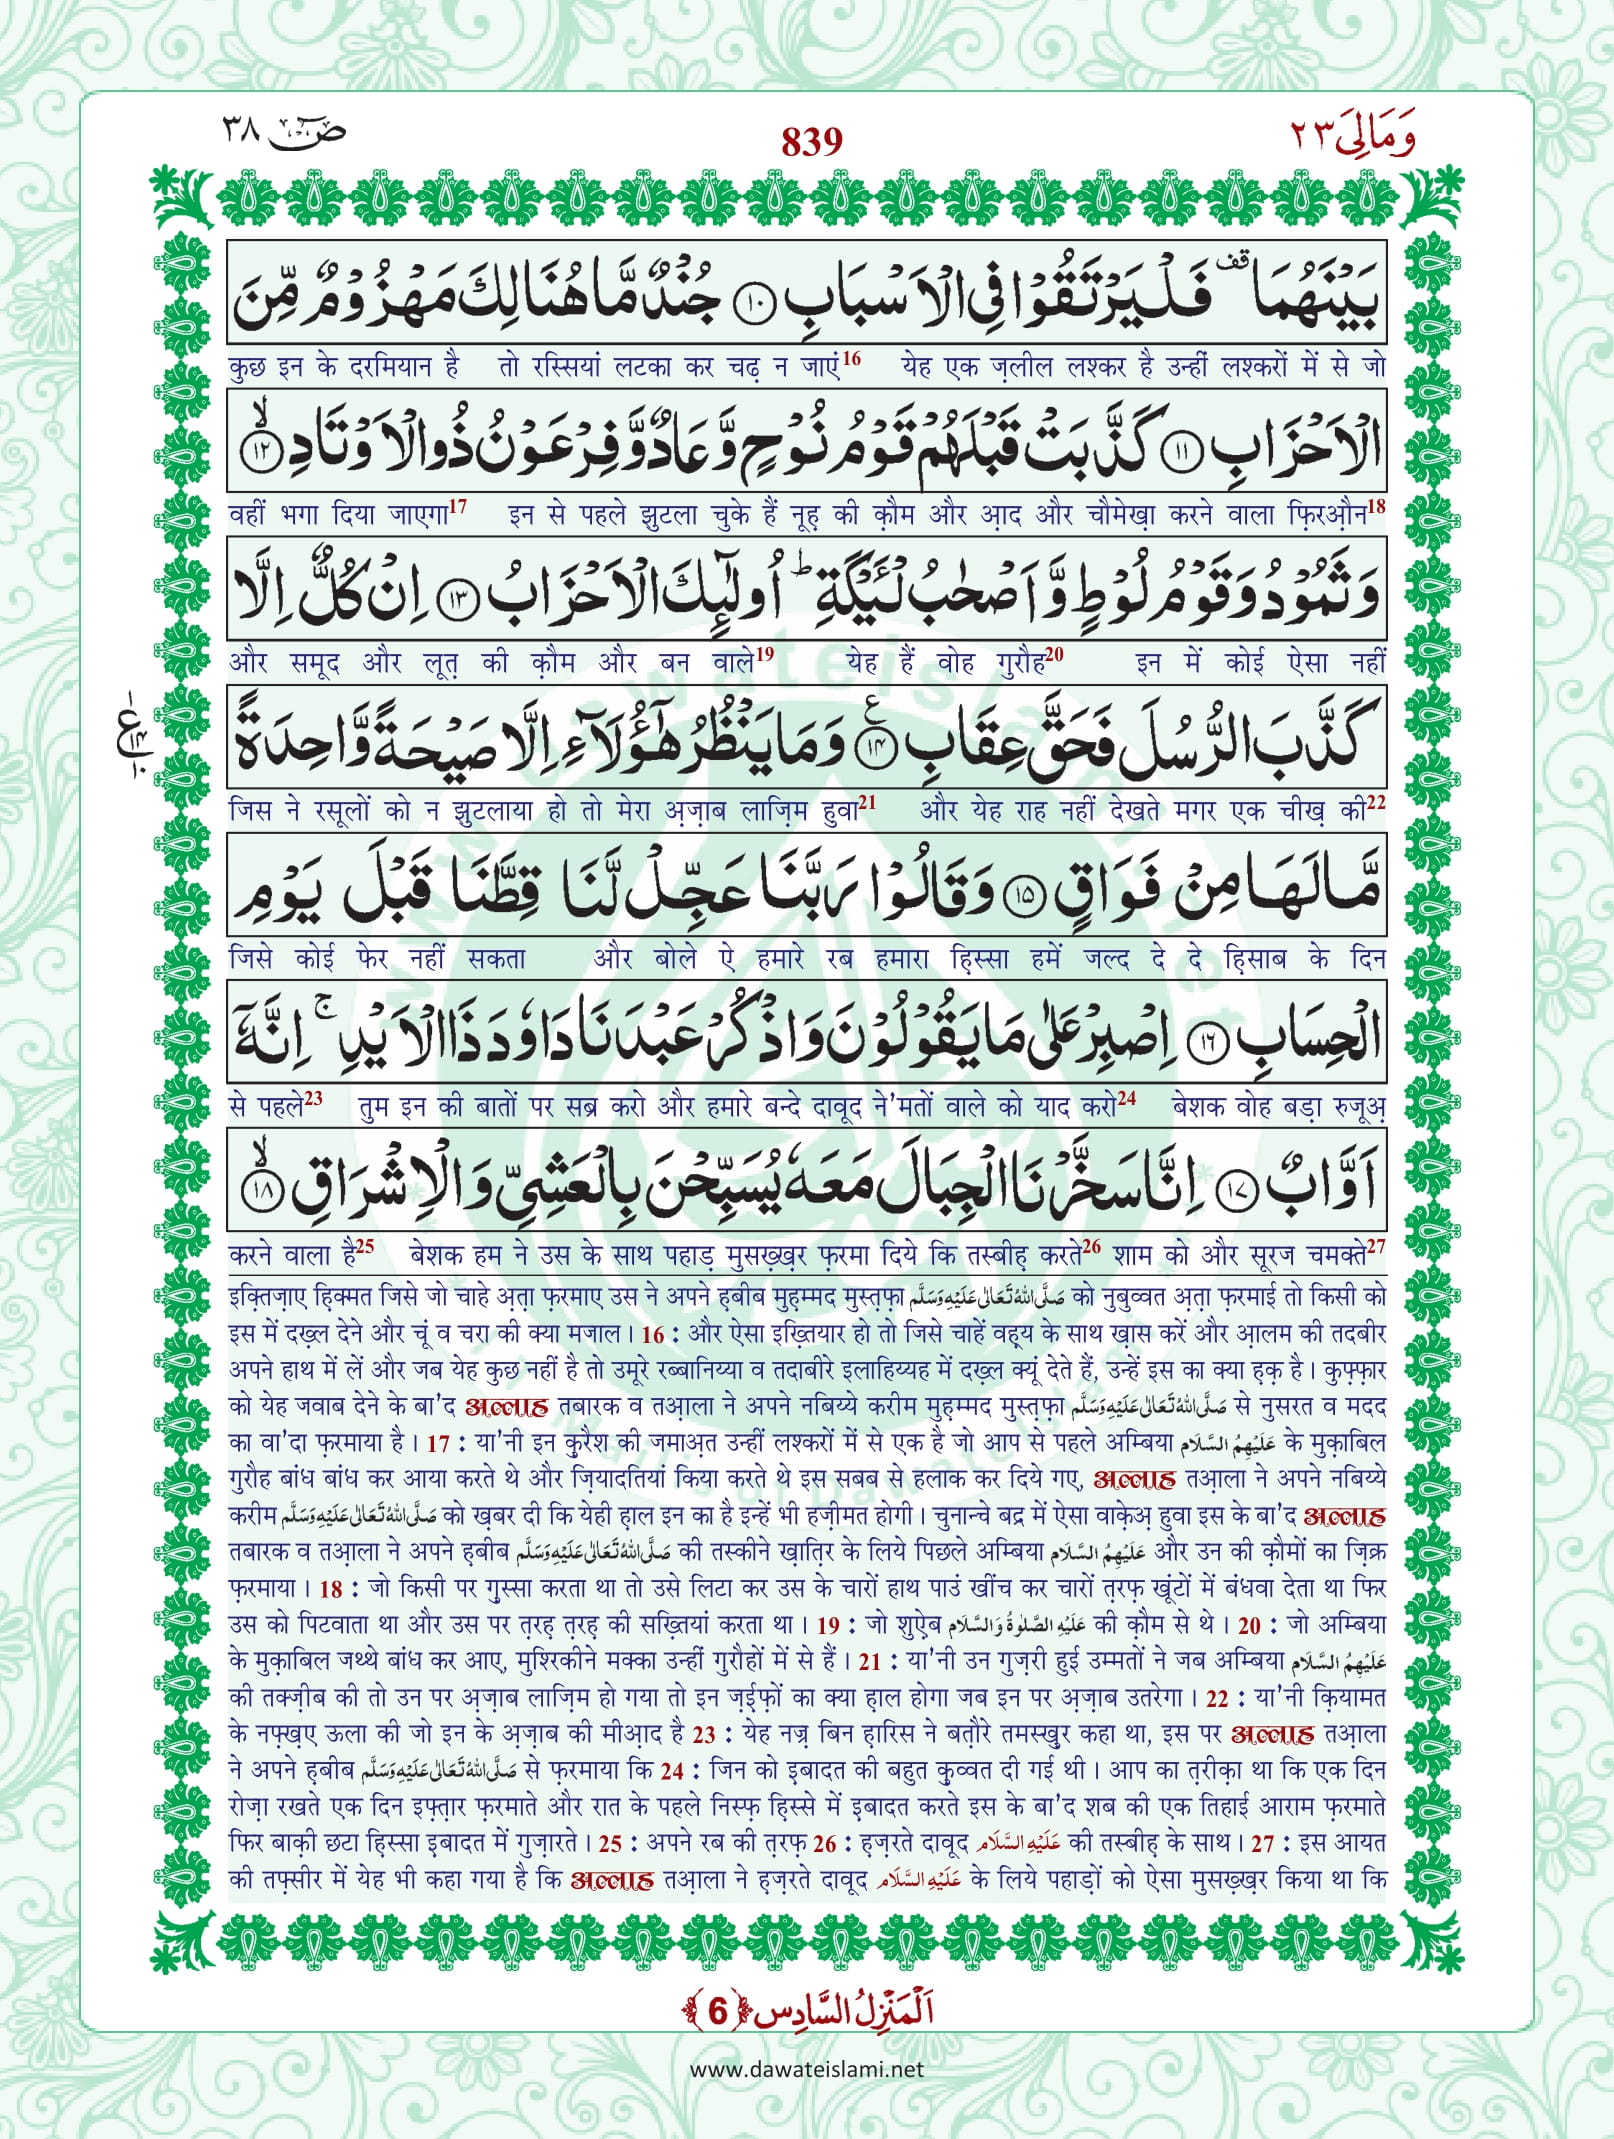 وَمَالِیَ ٢٣
839
صٓ ٣٨
بَيْنَهُمَا ۫ قف فَلْيَرْتَقُوْا فِي الْاَسْبَابِ ﴿١٠﴾ جُنْدٌ مَّا هُنَالِكَ مَهْزُوْمٌ مِّنَ
कुछ इन के दरमियान है तो रस्सियां लटका कर चढ़ न जाएं16 येह एक ज़लील लश्कर है उन्हीं लश्करों में से जो
الْاَحْزَابِ ﴿١١﴾ كَذَّبَتْ قَبْلَهُمْ قَوْمُ نُوْحٍ وَّعَادٌ وَّفِرْعَوْنُ ذُو الْاَوْتَادِ ﴿١٢﴾ۙ
वहीं भगा दिया जाएगा17 इन से पहले झुटला चुके हैं नूह़ की क़ौम और आ़द और चौमेख़ा करने वाला फ़िरऔ़न18
وَثَمُوْدُ وَقَوْمُ لُوْطٍ وَّاَصْحٰبُ لْـَٔيْكَةِ ؕ اُولٰٓئِكَ الْاَحْزَابُ ﴿١٣﴾ اِنْ كُلٌّ اِلَّا
और समूद और लूत़ की क़ौम और बन वाले19 येह हैं वोह गुरौह20 इन में कोई ऐसा नहीं
كَذَّبَ الرُّسُلَ فَحَقَّ عِقَابِ ﴿١٤﴾ع وَمَا يَنْظُرُ هٰٓؤُلَآءِ اِلَّا صَيْحَةً وَّاحِدَةً
ع ١٤ ١٠
जिस ने रसूलों को न झुटलाया हो तो मेरा अ़ज़ाब लाज़िम हुवा21 और येह राह नहीं देखते मगर एक चीख़ की22
مَّا لَهَا مِنْ فَوَاقٍ ﴿١٥﴾ وَقَالُوْا رَبَّنَا عَجِّلْ لَّنَا قِطَّنَا قَبْلَ يَوْمِ
जिसे कोई फेर नहीं सकता और बोले ऐ हमारे रब हमारा ह़िस्सा हमें जल्द दे दे ह़िसाब के दिन
الْحِسَابِ ﴿١٦﴾ اِصْبِرْ عَلٰى مَا يَقُوْلُوْنَ وَاذْكُرْ عَبْدَنَا دَاوٗدَ ذَا الْاَيْدِ ۚ اِنَّهٗٓ
से पहले23 तुम इन की बातों पर सब्र करो और हमारे बन्दे दावूद ने'मतों वाले को याद करो24 बेशक वोह बड़ा रुजूअ़
اَوَّابٌ ﴿١٧﴾ اِنَّا سَخَّرْنَا الْجِبَالَ مَعَهٗ يُسَبِّحْنَ بِالْعَشِيِّ وَالْاِشْرَاقِ ﴿١٨﴾ۙ
करने वाला है25 बेशक हम ने उस के साथ पहाड़ मुसख़्ख़र फ़रमा दिये कि तस्बीह़ करते26 शाम को और सूरज चमक्ते27
इक़्तिज़ाए ह़िक्मत जिसे जो चाहे अ़त़ा फ़रमाए उस ने अपने ह़बीब मुह़म्मद मुस्त़फ़ा صَلَّى اللهُ تَعَالٰى عَلَيْهِ وَسَلَّم को नुबुव्वत अ़त़ा फ़रमाई तो किसी को
इस में दख़्ल देने और चूं व चरा की क्या मजाल। 16 : और ऐसा इख़्तियार हो तो जिसे चाहें वह़्य के साथ ख़ास करें और आ़लम की तदबीर
अपने हाथ में लें और जब येह कुछ नहीं है तो उमूरे रब्बानिय्या व तदाबीरे इलाहिय्यह में दख़्ल क्यूं देते हैं, उन्हें इस का क्या ह़क़ है। कुफ़्फ़ार
को येह जवाब देने के बा'द अल्लाह तबारक व तआ़ला ने अपने नबिय्ये करीम मुह़म्मद मुस्त़फ़ा صَلَّى اللهُ تَعَالٰى عَلَيْهِ وَسَلَّم से नुसरत व मदद
का वा'दा फ़रमाया है। 17 : या'नी इन क़ुरैश की जमाअ़त उन्हीं लश्करों में से एक है जो आप से पहले अम्बिया عَلَيْهِمُ السَّلَام के मुक़ाबिल
गुरौह बांध बांध कर आया करते थे और ज़ियादतियां किया करते थे इस सबब से हलाक कर दिये गए, अल्लाह तआ़ला ने अपने नबिय्ये
करीम صَلَّى اللهُ تَعَالٰى عَلَيْهِ وَسَلَّم को ख़बर दी कि येही ह़ाल इन का है इन्हें भी हज़ीमत होगी। चुनान्चे बद्र में ऐसा वाक़ेअ़ हुवा इस के बा'द अल्लाह
तबारक व तआ़ला ने अपने ह़बीब صَلَّى اللهُ تَعَالٰى عَلَيْهِ وَسَلَّم की तस्कीने ख़ात़िर के लिये पिछले अम्बिया عَلَيْهِمُ السَّلَام और उन की क़ौमों का ज़िक्र
फ़रमाया। 18 : जो किसी पर ग़ुस्सा करता था तो उसे लिटा कर उस के चारों हाथ पाउं खींच कर चारों त़रफ़ खूंटों में बंधवा देता था फिर
उस को पिटवाता था और उस पर त़रह़ त़रह़ की सख़्तियां करता था। 19 : जो शुऐ़ब عَلَيْهِ الصَّلٰوةُ وَالسَّلَام की क़ौम से थे। 20 : जो अम्बिया
के मुक़ाबिल जथ्थे बांध कर आए, मुश्रिकीने मक्का उन्हीं गुरौहों में से हैं। 21 : या'नी उन गुज़री हुई उम्मतों ने जब अम्बिया عَلَيْهِمُ السَّلَام
की तक्ज़ीब की तो उन पर अ़ज़ाब लाज़िम हो गया तो इन ज़ई़फ़ों का क्या ह़ाल होगा जब इन पर अ़ज़ाब उतरेगा। 22 : या'नी क़ियामत
के नफ़्ख़ए ऊला की जो इन के अ़ज़ाब की मीआ़द है 23 : येह नज़्र बिन ह़ारिस ने बत़ौरे तमस्ख़ुर कहा था, इस पर अल्लाह तआ़ला
ने अपने ह़बीब صَلَّى اللهُ تَعَالٰى عَلَيْهِ وَسَلَّم से फ़रमाया कि 24 : जिन को इबादत की बहुत क़ुव्वत दी गई थी। आप का त़रीक़ा था कि एक दिन
रोज़ा रखते एक दिन इफ़्त़ार फ़रमाते और रात के पहले निस्फ़ ह़िस्से में इबादत करते इस के बा'द शब की एक तिहाई आराम फ़रमाते
फिर बाक़ी छटा ह़िस्सा इबादत में गुज़ारते। 25 : अपने रब की त़रफ़ 26 : ह़ज़रते दावूद عَلَيْهِ السَّلَام की तस्बीह़ के साथ। 27 : इस आयत
की तफ़्सीर में येह भी कहा गया है कि अल्लाह तआ़ला ने ह़ज़रते दावूद عَلَيْهِ السَّلَام के लिये पहाड़ों को ऐसा मुसख़्ख़र किया था कि
اَلْمَنْزِلُ السَّادِس ﴿6﴾
www.dawateislami.net